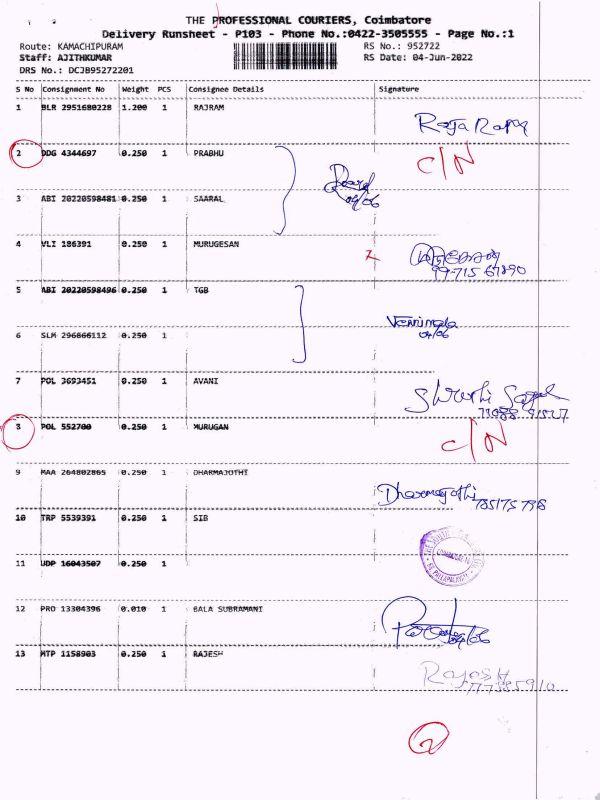 THE PROFESSIONAL COURIERS, Coimbatore
Delivery Runsheet - P103 - Phone No.:0422-3505555 - Page No.:1
Route: KAMACHIPURAM RS No.: 952722
Staff: AJITHKUMAR RS Date: 04-Jun-2022
DRS No.: DCJB95272201
S No Consignment No Weight PCS Consignee Details Signature
1 BLR 2951680228 1.200 1 RAJRAM
2 DDG 4344697 0.250 1 PRABHU C/N
3 ABI 20220598481 0.250 1 SAARAL 04/06
4 VLI 186391 0.250 1 MURUGESAN
99715 67890
5 ABI 20220598496 0.250 1 TGB
6 SLM 296666112 0.250 1 04/06
7 POL 3693451 0.250 1 AVANI
8 POL 552700 0.250 1 MURUGAN C/N
9 MAA 264802865 0.250 1 DHARMAJOTHI
10 TRP 5539391 0.250 1 SIB
11 UDP 16043507 0.250 1
12 PRO 13304396 0.010 1 BALA SUBRAMANI
13 MTP 1158903 0.250 1 RAJESH Rajesh
2